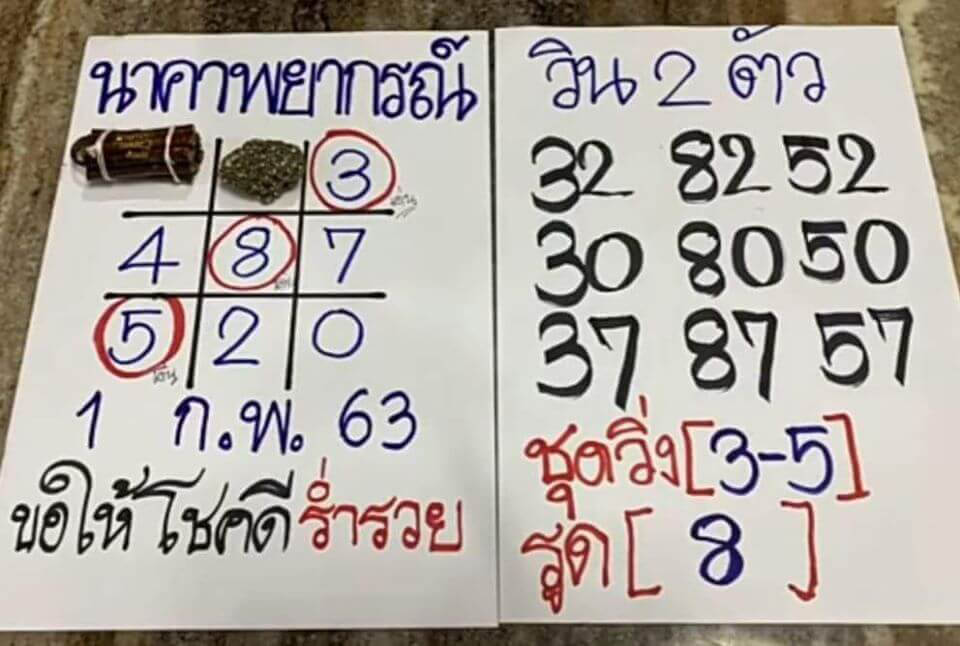 นาคาพยากรณ์
3
เด่น
4 8 7
5 2 0
1 ก.พ. 63
ขอให้โชคดี ร่ำรวย
วิน 2 ตัว
32 82 52
30 80 50
37 87 57
ชุดวิ่ง [3-5]
รูด [ 8 ]